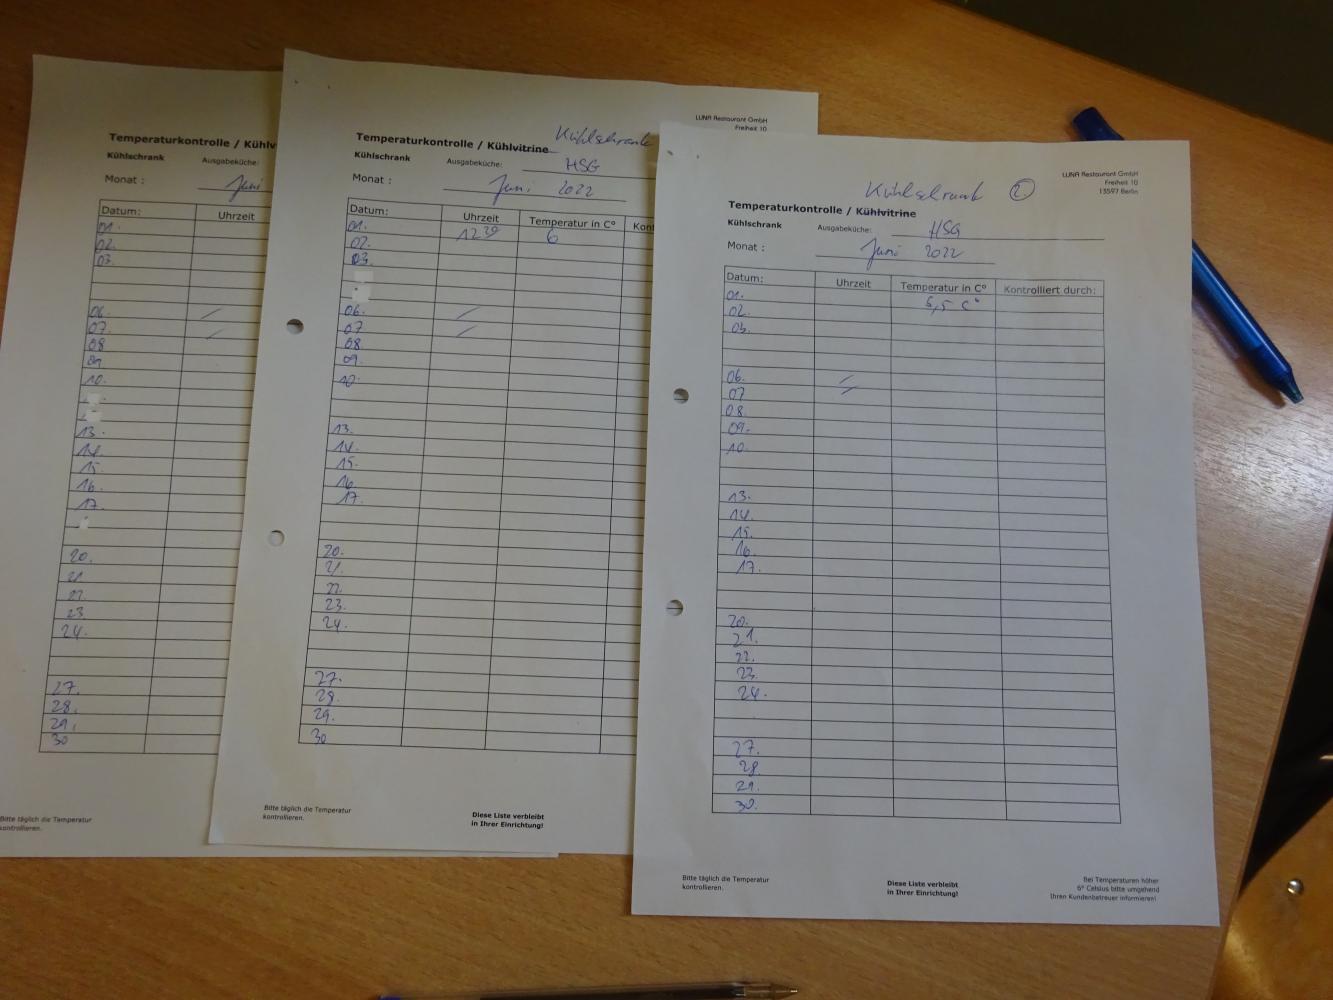 Temperaturkontrolle / Kühlv
Kühlschrank Ausgabeküche:
Monat : Juni
Datum: Uhrzeit
01.
02.
03.
06.
07.
08
09
10.
13.
14.
15.
16.
17.
20.
21
22.
23.
24.
27.
28.
29.
30
Bitte täglich die Temperatur
kontrollieren.
LUNA Restaurant GmbH
Freiheit 10
Kühlschrank
Temperaturkontrolle / Kühlvitrine
Kühlschrank Ausgabeküche: HSG
Monat : Juni 2022
Datum: Uhrzeit Temperatur in C° Kont
01. 12 39 6
02.
03.
06.
07
08
09.
10.
13.
14.
15.
16.
17.
20.
21.
22.
23.
24.
27.
28.
29.
30
Bitte täglich die Temperatur
kontrollieren.
Diese Liste verbleibt
in Ihrer Einrichtung!
LUNA Restaurant GmbH
Freiheit 10
13597 Berlin
Kühlschrank 2.
Temperaturkontrolle / Kühlvitrine
Kühlschrank Ausgabeküche: HSG
Monat : Juni 2022
Datum: Uhrzeit Temperatur in C° Kontrolliert durch:
01. 6,5 C°
02.
03.
06.
07
08.
09.
10.
13.
14.
15.
16.
17.
20.
21.
22.
23.
24.
27.
28.
29.
30.
Bitte täglich die Temperatur
kontrollieren.
Diese Liste verbleibt
in Ihrer Einrichtung!
Bei Temperaturen höher
6° Celsius bitte umgehend
Ihren Kundenbetreuer informieren!